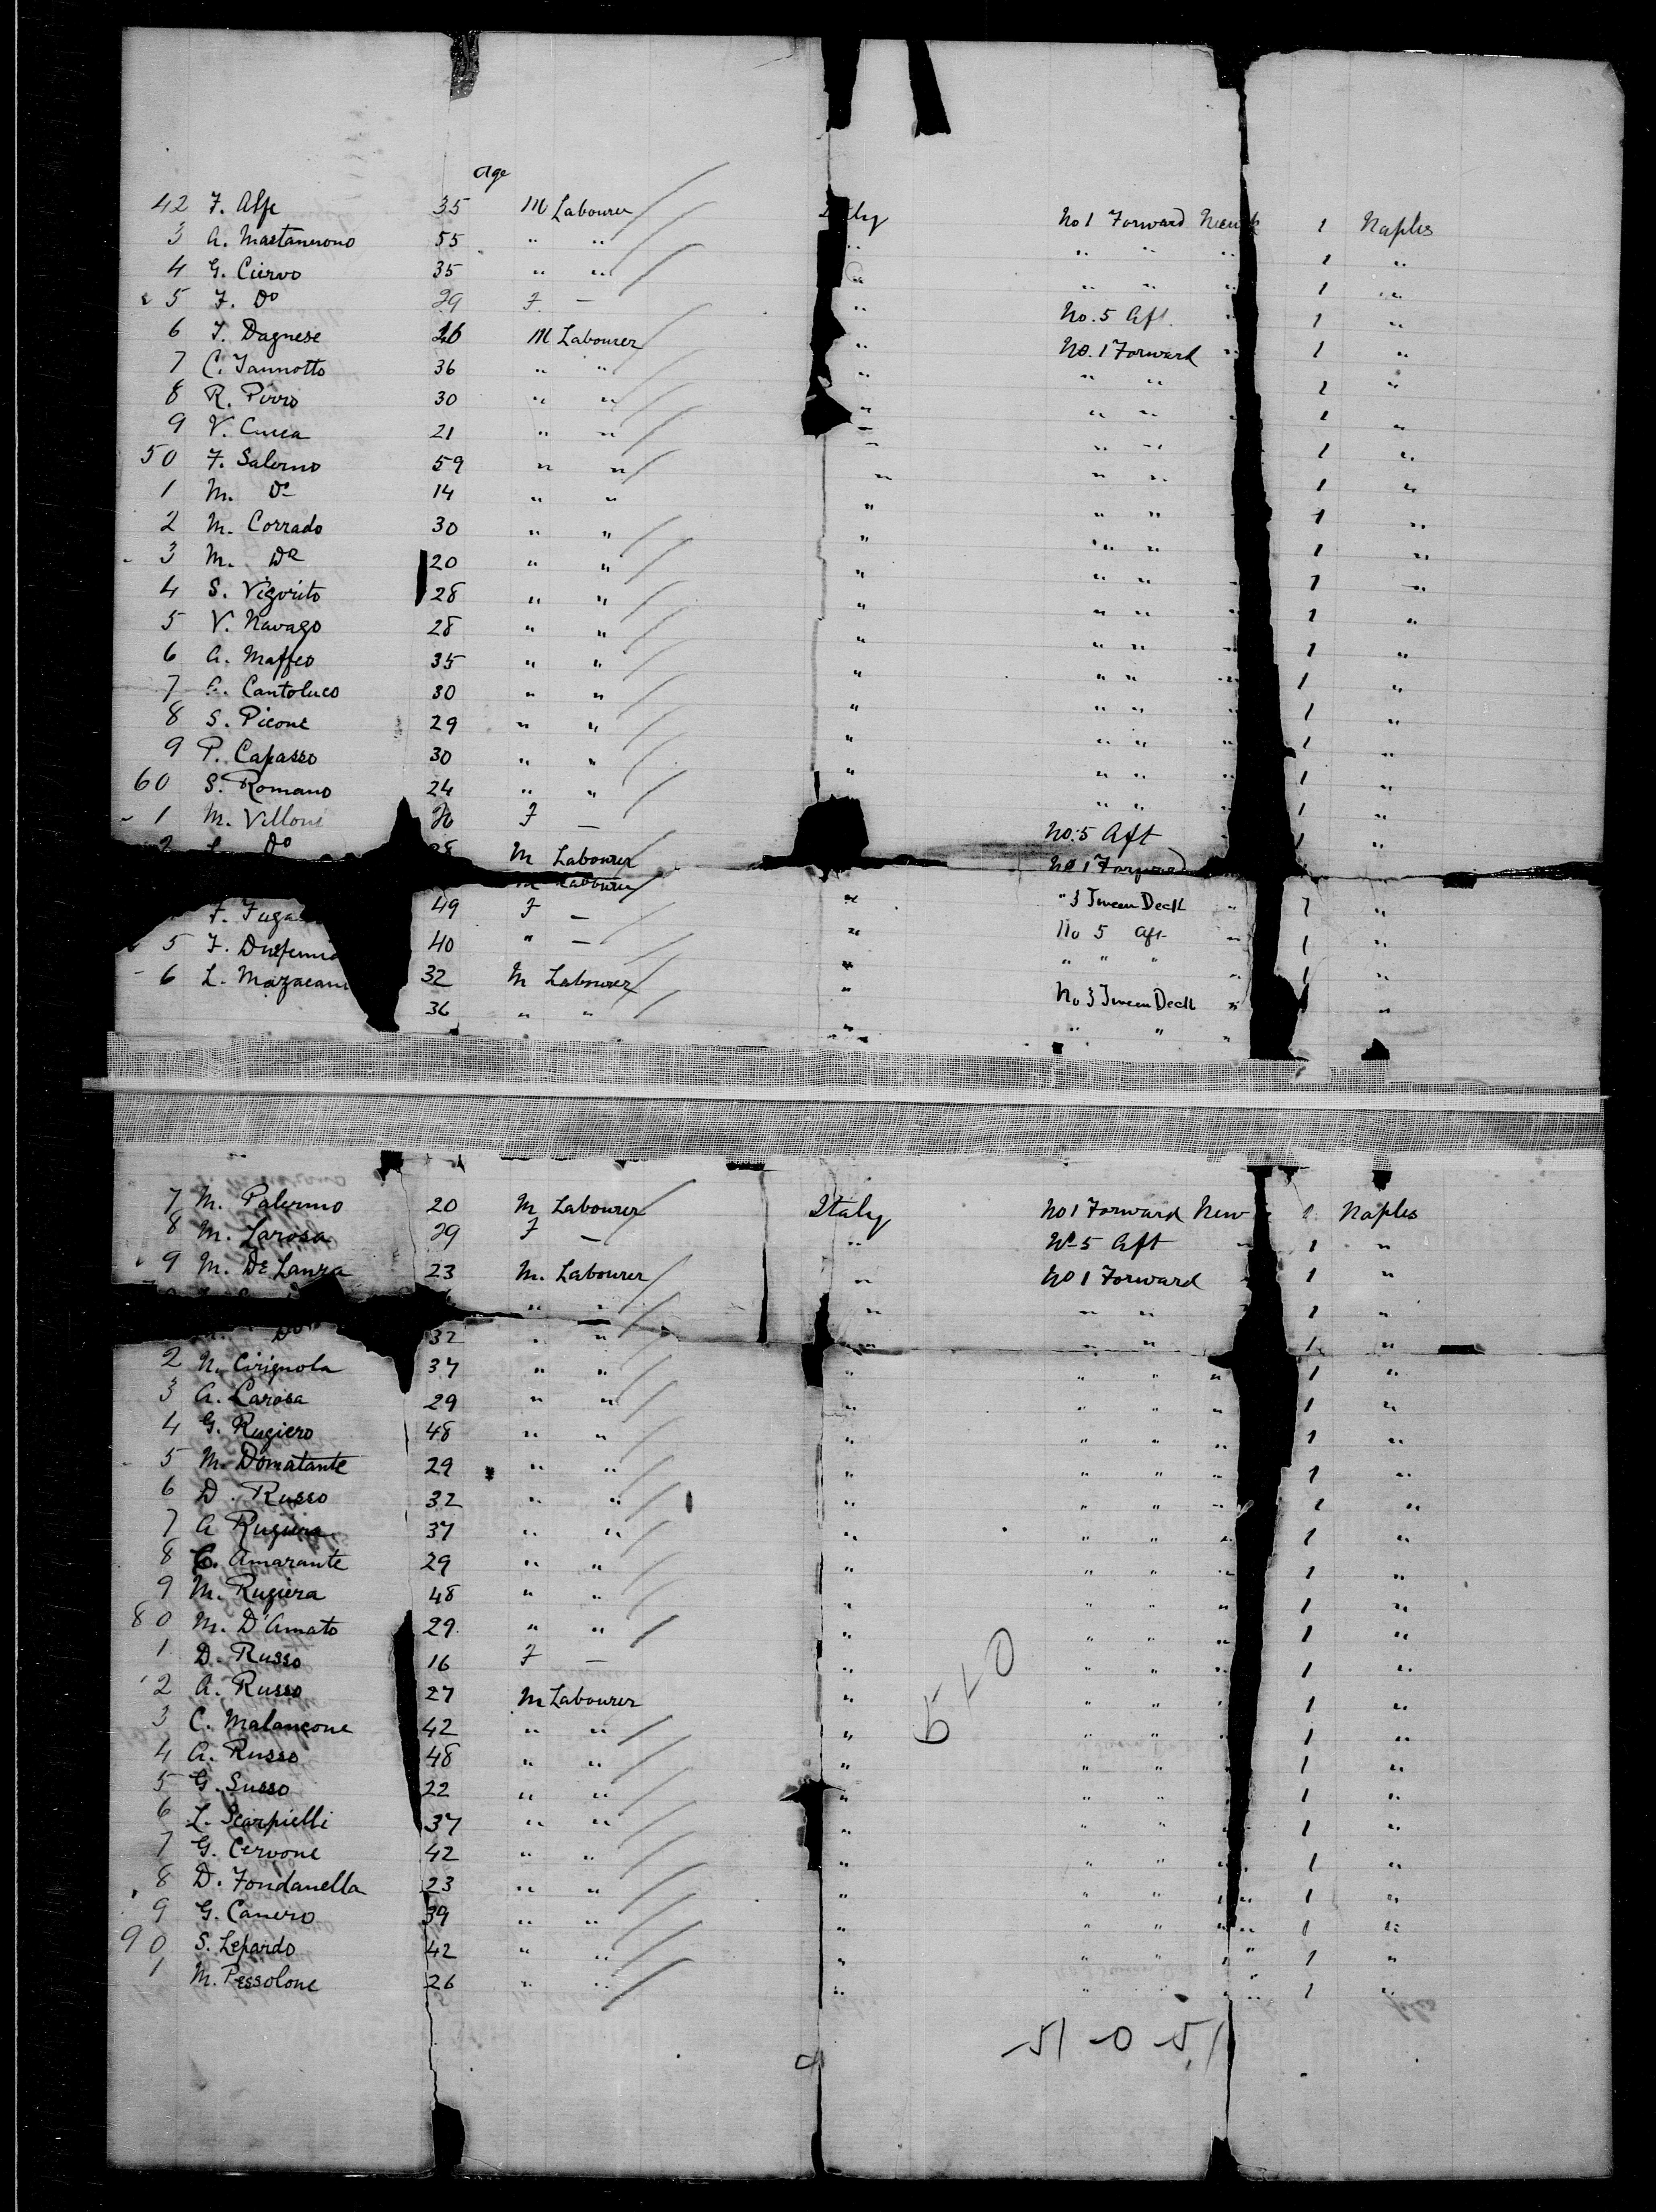 age
42 F. Alfe 35 M Labourer Italy No 1 Forward 1 Naples
3 A. Mastanuono 55 " " " " " " 1 "
4 G. Ciervo 35 " " " " " " 1 "
5 F. Do 29 F. — " No. 5 Aft. " 1 "
6 F. Dagnese 26 M Labourer " No. 1 Forward " 1 "
7 C. Iannotto 36 " " " " " 1 "
8 R. Pirro 30 " " " " " " 1 "
9 V. 21 " " " " " 1 "
50 F. Salerno 59 " " " " " 1 "
1 M. Do 14 " " " " " 1 "
2 M. Corrado 30 " " " " " 1 "
3 M. Do 20 " " " " " " 1 "
4 S. Vigorito 28 " " " " " " 1 "
5 V. Navago 28 " " " " " " 1 "
6 A. Maffeo 35 " " " " " " 1 "
7 A. Cantoluco 30 " " " " " " 1 "
8 S. Picone 29 " " " " " " 1 "
9 P. Capasso 30 " " " " " " 1 "
60 S. Romano 24 " " " " " 1 "
1 M. Villone F — No. 5 Aft 1 "
2 Do 28 M Labourer No 1 Forward
M Labourer " " 3 Tween Deck " "
F. 49 F — " No 5 Aft " 1 "
5 F. 40 " — " " " " " 1 "
6 L. 32 M Labourer " No 3 Tween Deck " "
36 " " " " " "
7 M. Palermo 20 M Labourer Italy No 1 Forward New 1 Naples
8 M. Larosa 29 F — " No 5 Aft " 1 "
9 M. De Lanza 23 M. Labourer " No 1 Forward 1 "
" " " " " 1 "
Do 32 " " " " " 1 "
2 N. Cirignola 37 " " " " " " 1 "
3 A. Larosa 29 " " " " " " 1 "
4 G. Rugiero 48 " " " " " " 1 "
5 M. Domatante 29 " " " " " " 1 "
6 D. Russo 32 " " " " " " 1 "
7 A Rugiera 37 " " " " " " 1 "
8 C. Amarante 29 " " " " " " 1 "
9 M. Rugiera 48 " " " " " " 1 "
80 M. D'Amato 29 " " " " " " 1 "
1 D. Russo 16 F — " " " " 1 "
2 A. Russo 27 M Labourer " " " " 1 "
3 C. Malancone 42 " " " " " 1 "
4 A. Russo 48 " " " " " 1 "
5 G. Susso 22 " " " " " " 1 "
6 L. Scarpielli 37 " " " " " " 1 "
7 G. Cervone 42 " " " " " " 1 "
8 D. Fondanella 23 " " " " " " 1 "
9 G. Canero 39 " " " " " " 1 "
90 S. Lepardo 42 " " " " " " 1 "
1 M. Pessolone 26 " " " " " " 1 "
51 - 0 - 51